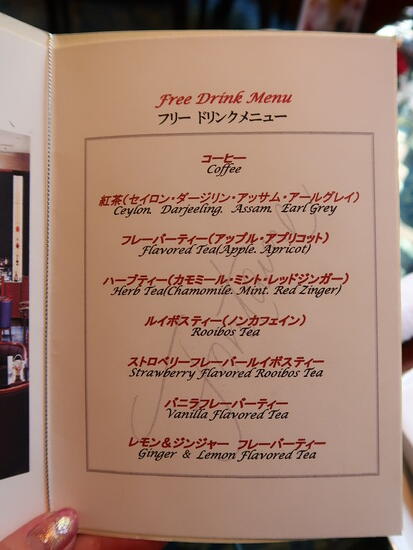 Free Drink Menu
フリー ドリンクメニュー
コーヒー
Coffee
紅茶(セイロン・ダージリン・アッサム・アールグレイ)
Ceylon. Darjeeling. Assam. Earl Grey
フレーバーティー(アップル・アプリコット)
Flavored Tea(Apple. Apricot)
ハーブティー(カモミール・ミント・レッドジンガー)
Herb Tea(Chamomile. Mint. Red Zinger)
ルイボスティー(ノンカフェイン)
Rooibos Tea
ストロベリーフレーバールイボスティー
Strawberry Flavored Rooibos Tea
バニラフレーバーティー
Vanilla Flavored Tea
レモン&ジンジャー フレーバーティー
Ginger & Lemon Flavored Tea